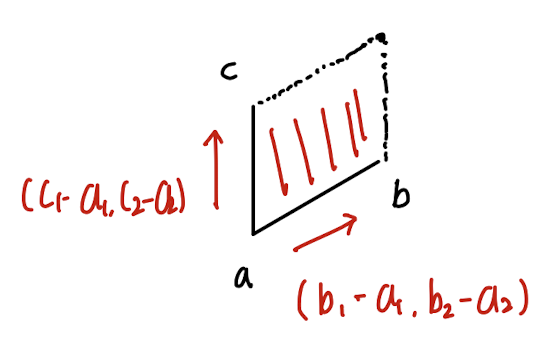 c
(c₁-a₁,c₂-a₂)
b
a
(b₁-a₁,b₂-a₂)